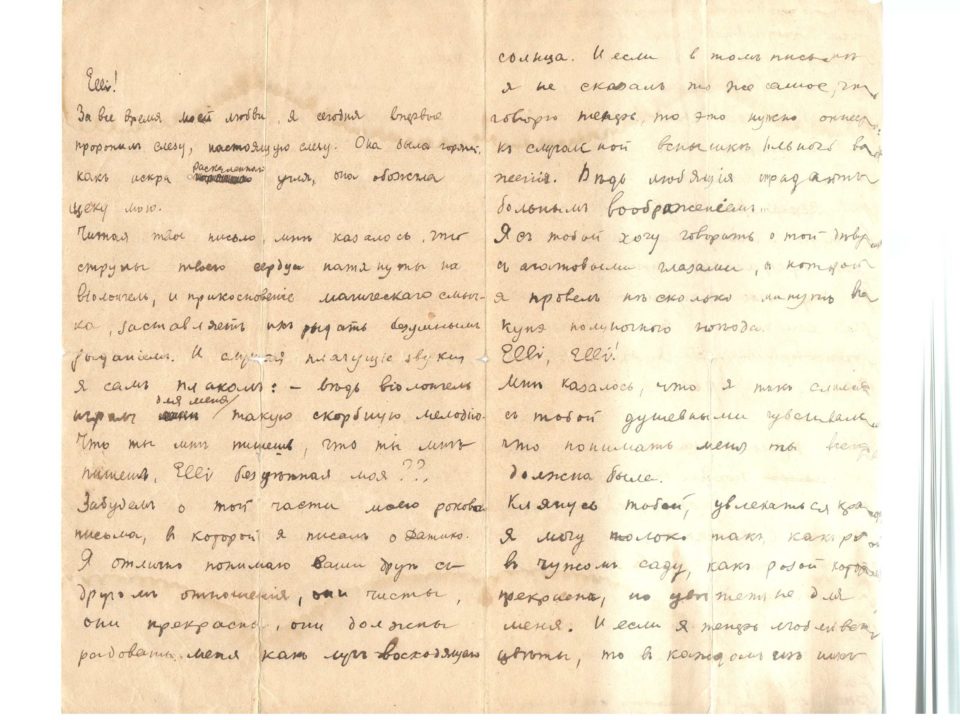 Elli!
За все время моей любви, я сегодня впервые
проронилъ слезу, настоящую слезу. Она была горячей,
какъ искра раскаленнаго угля, она обожгла
щеку мою.
Читая твое письмо, мнѣ казалось, что
струны твоего сердца натянуты на
віолончель, и прикосновеніе магическаго смыч-
ка, заставляетъ ихъ рыдать безумнымъ
рыданіемъ. И слушая плачущіе звуки
я самъ плакалъ: – вѣдь віолончель
играла для меня такую скорбную мелодію.
Что ты мнѣ пишешь, что ты мнѣ
пишешь, Elli безцѣнная моя??
Забудемъ о той части моего роковог
письма, въ которой я писалъ о Датико.
Я отлично понимаю ваши другъ съ
другомъ отношенія, они чисты,
они прекрасны, они должны
радовать меня какъ лучъ восходящаго
солнца. И если въ томъ письмѣ
я не сказалъ то же самое, что
говорю теперь, то это нужно отнести
къ случайной вспышкѣ больного
женія. Вѣдь любящія страдаютъ
больнымъ воображеніемъ..
Я съ тобой хочу говорить о той
съ агатовыми глазами, съ которой
я провелъ нѣсколько минутъ въ
купэ полуночного поѣзда.
Elli, Elli!
Мнѣ казалось, что я такъ слился
съ тобой душевными чувствами
что понимать меня ты всегда
должна была.
Клянусь тобой, увлекаться
я могу только такъ, какъ розой
въ чужомъ саду, какъ розой которая
прекрасна, но цвѣтетъ не для
меня. И если я теперь люблю
цвѣты, то въ каждомъ изъ нихъ